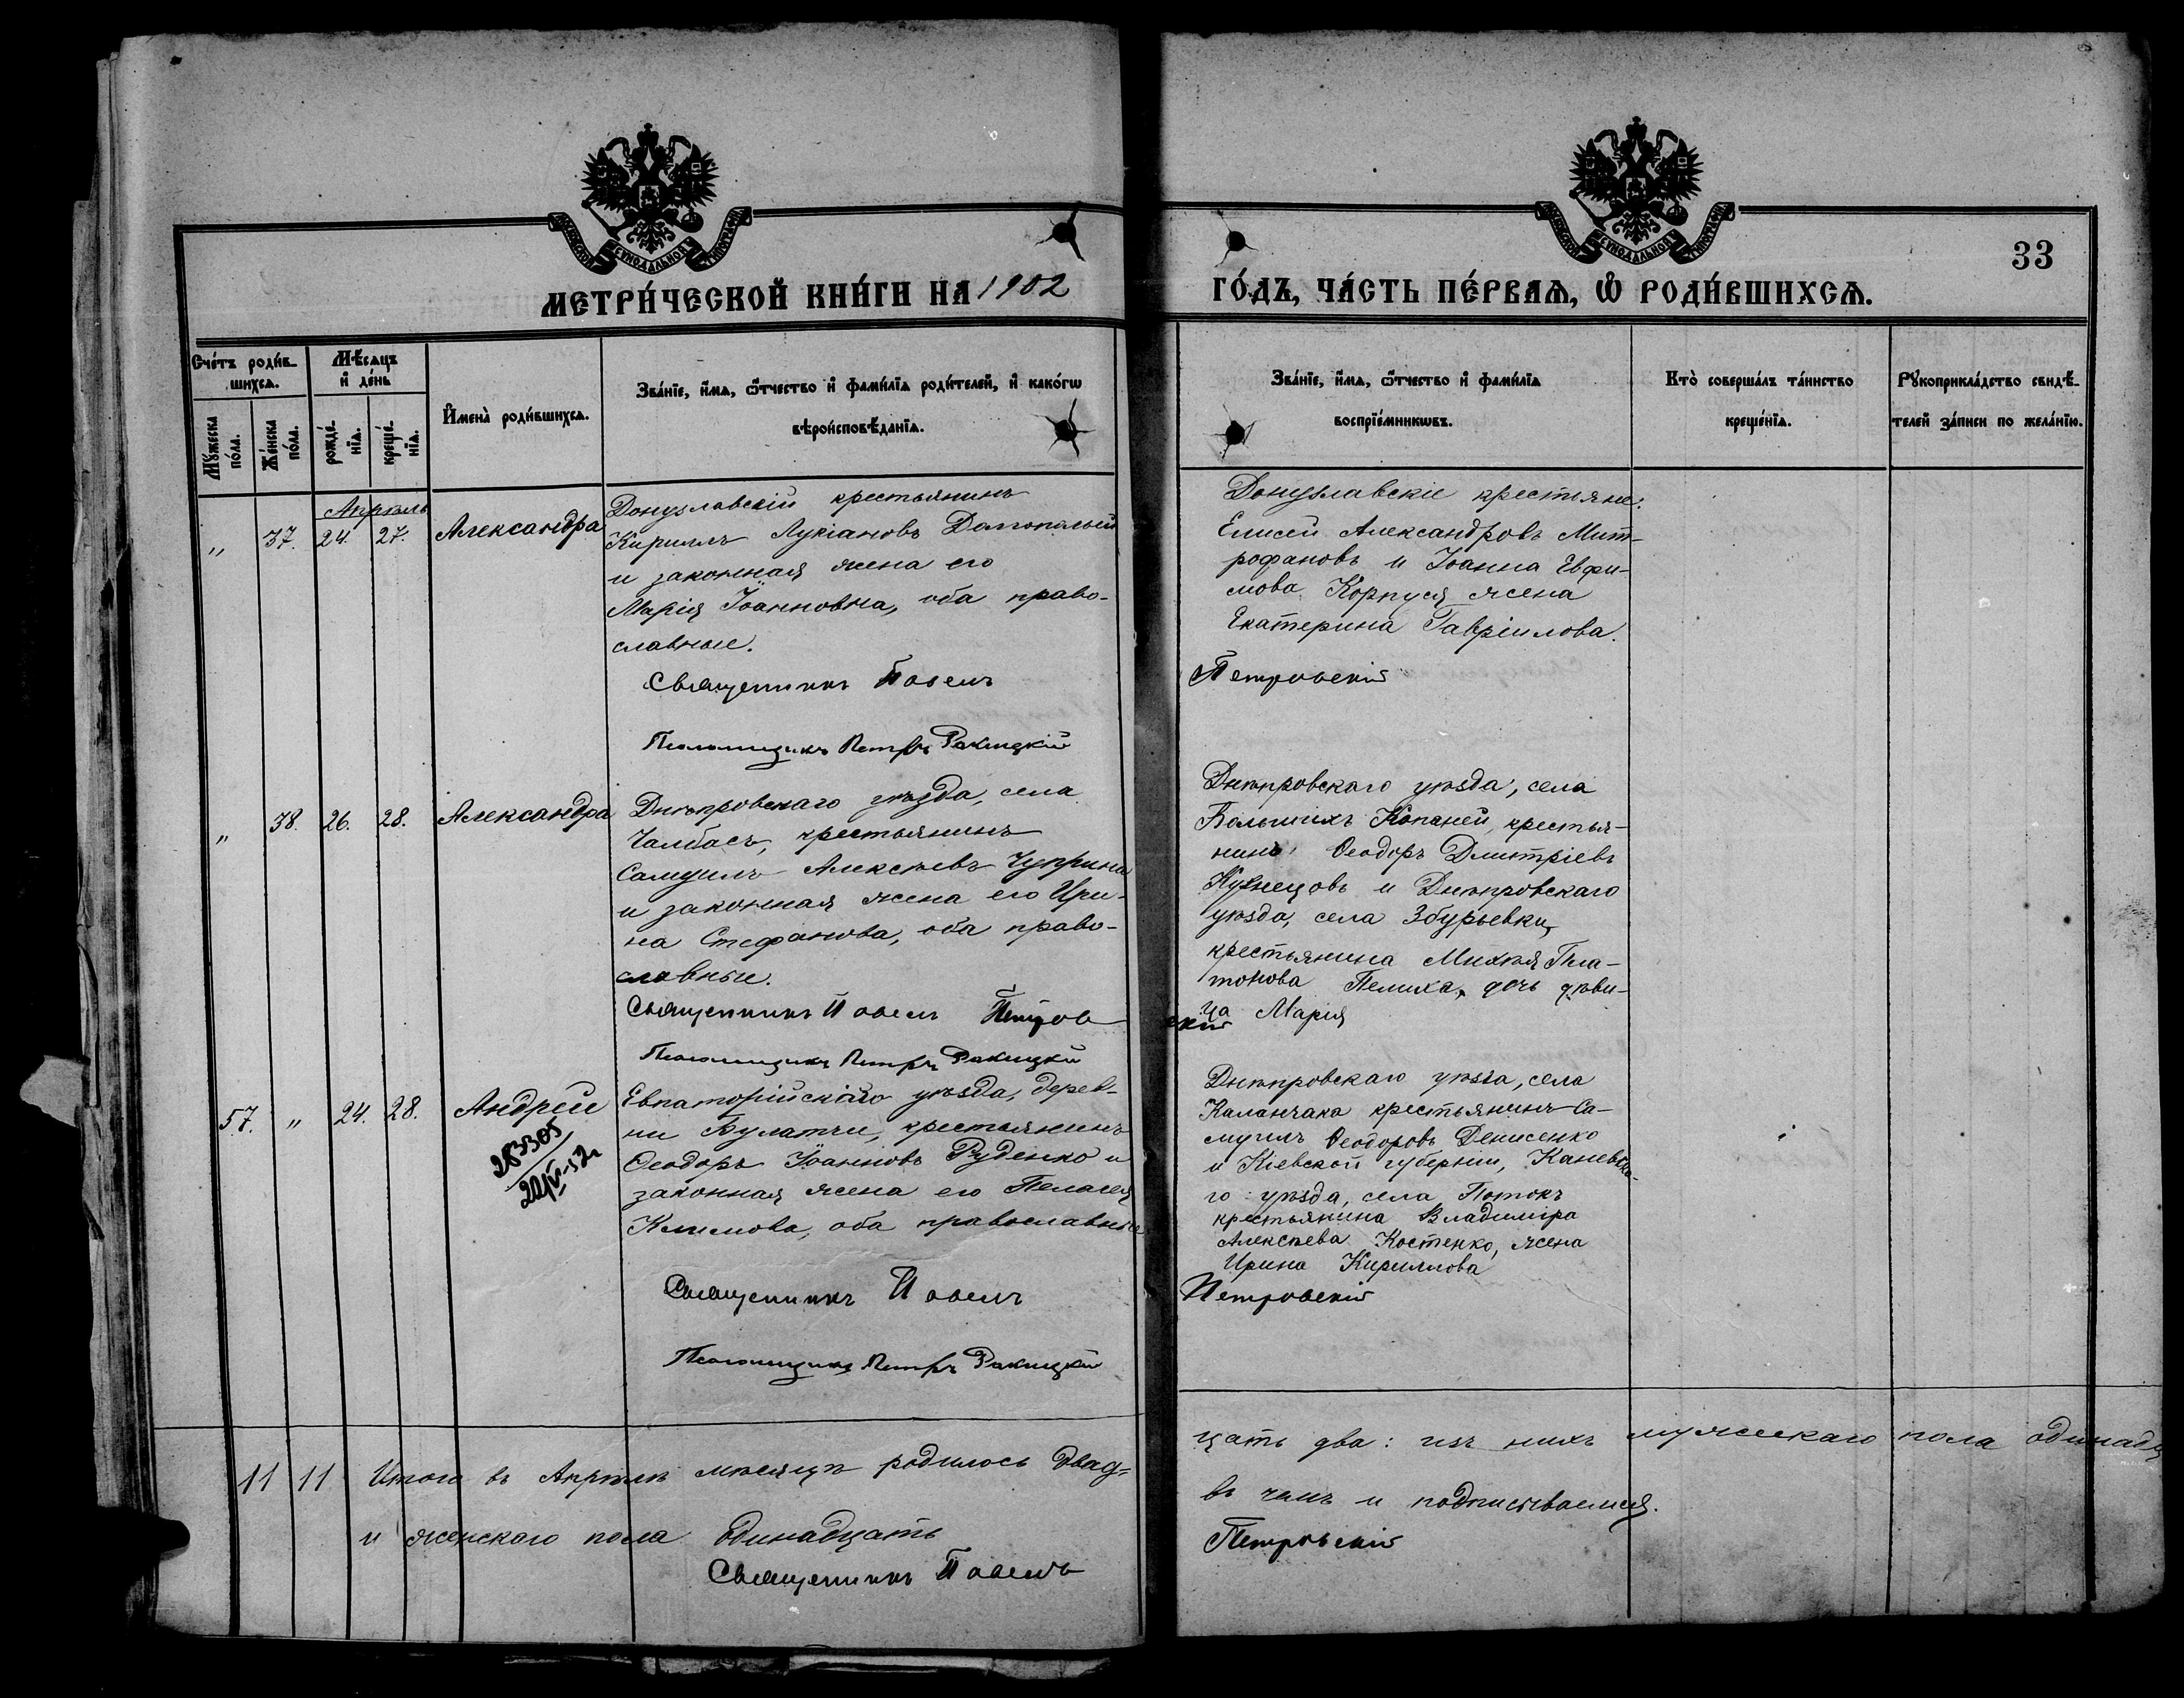 33
МЕТРИ́ЧЕСКОЙ КНИ́ГИ НА 1902
ГО́ДЪ, ЧА́СТЬ ПЕ́РВАѦ, Ѽ РОДИ́ВШИХСѦ.
Сче́тъ роди́в-
шихсѧ.
Мѣ́сѧцъ
и҆ де́нь
Мꙋ́жеска
по́ла.
Же́нска
по́ла.
рожде́-
нїѧ.
креще́-
нїѧ.
И҆мена̀ роди́вшихсѧ.
Зва́нїе, и҆́мѧ, ѻ҆́тчество и҆ фами́лїѧ роди́телей, и҆ како́гѡ
вѣроисповѣ́данїѧ.
Зва́нїе, и҆́мѧ, ѻ҆́тчество и҆ фами́лїѧ
воспрїе́мникѡвъ.
Кто̀ соверша́лъ та́инство
креще́нїѧ.
Рꙋкоприкла́дство свидѣ́-
телей за́писи по жела́нїю.
Апрѣль
„ 37. 24. 27. Александра
Донузлавскій крестьянинъ
Кириллъ Лукіановъ Долгополый
и законная жена его
Марія Іоанновна, оба право-
славные.
Священникъ Павелъ
Псаломщикъ Петръ Ракицкій
Донузлавскіе крестьяне:
Елисей Александровъ Мит-
рофановъ и Іоанна Евфи-
мова Корпуся жена
Екатерина Гавріилова.
Петровскій
„ 38. 26. 28. Александра
Днѣпровскаго уѣзда, села
Чалбасъ, крестьянинъ
Самуилъ Алексѣевъ Чуприна
и законная жена его Ири-
на Стефанова, оба право-
славные.
Священникъ Павелъ Петров
Псаломщикъ Петръ Ракицкій
Днѣпровскаго уѣзда, села
Большихъ Копаней, крестья-
нинъ Ѳеодоръ Дмитріевъ
Кузнецовъ и Днѣпровскаго
уѣзда, села Збурьевки,
крестьянина Михѣя Пла-
тонова Пелиха, дочь дѣви-
ца Марія
скій
57. „ 24. 28. Андрей
283305
20/V-52г
Евпаторійскаго уѣзда, дерев-
ни Булатчи, крестьянинъ
Ѳеодоръ Іоанновъ Руденко и
законная жена его Пелагея
Климова, оба православные
Священникъ Павелъ
Псаломщикъ Петръ Ракицкій
Днѣпровскаго уѣзда, села
Каланчака крестьянинъ Са-
муилъ Ѳеодоровъ Денисенко
и Кіевской губерніи, Каневска-
го уѣзда, села Потокъ
крестьянина Владиміра
Алексѣева Костенко, жена
Ирина Кириллова
Петровскій
11 11 Итого въ Апрѣлѣ мѣсяцѣ родилось двад-
цать два: изъ нихъ мужескаго пола одинадц
и женскаго пола одинадцать
въ чемъ и подписываемся.
Священникъ Павелъ
Петровскій